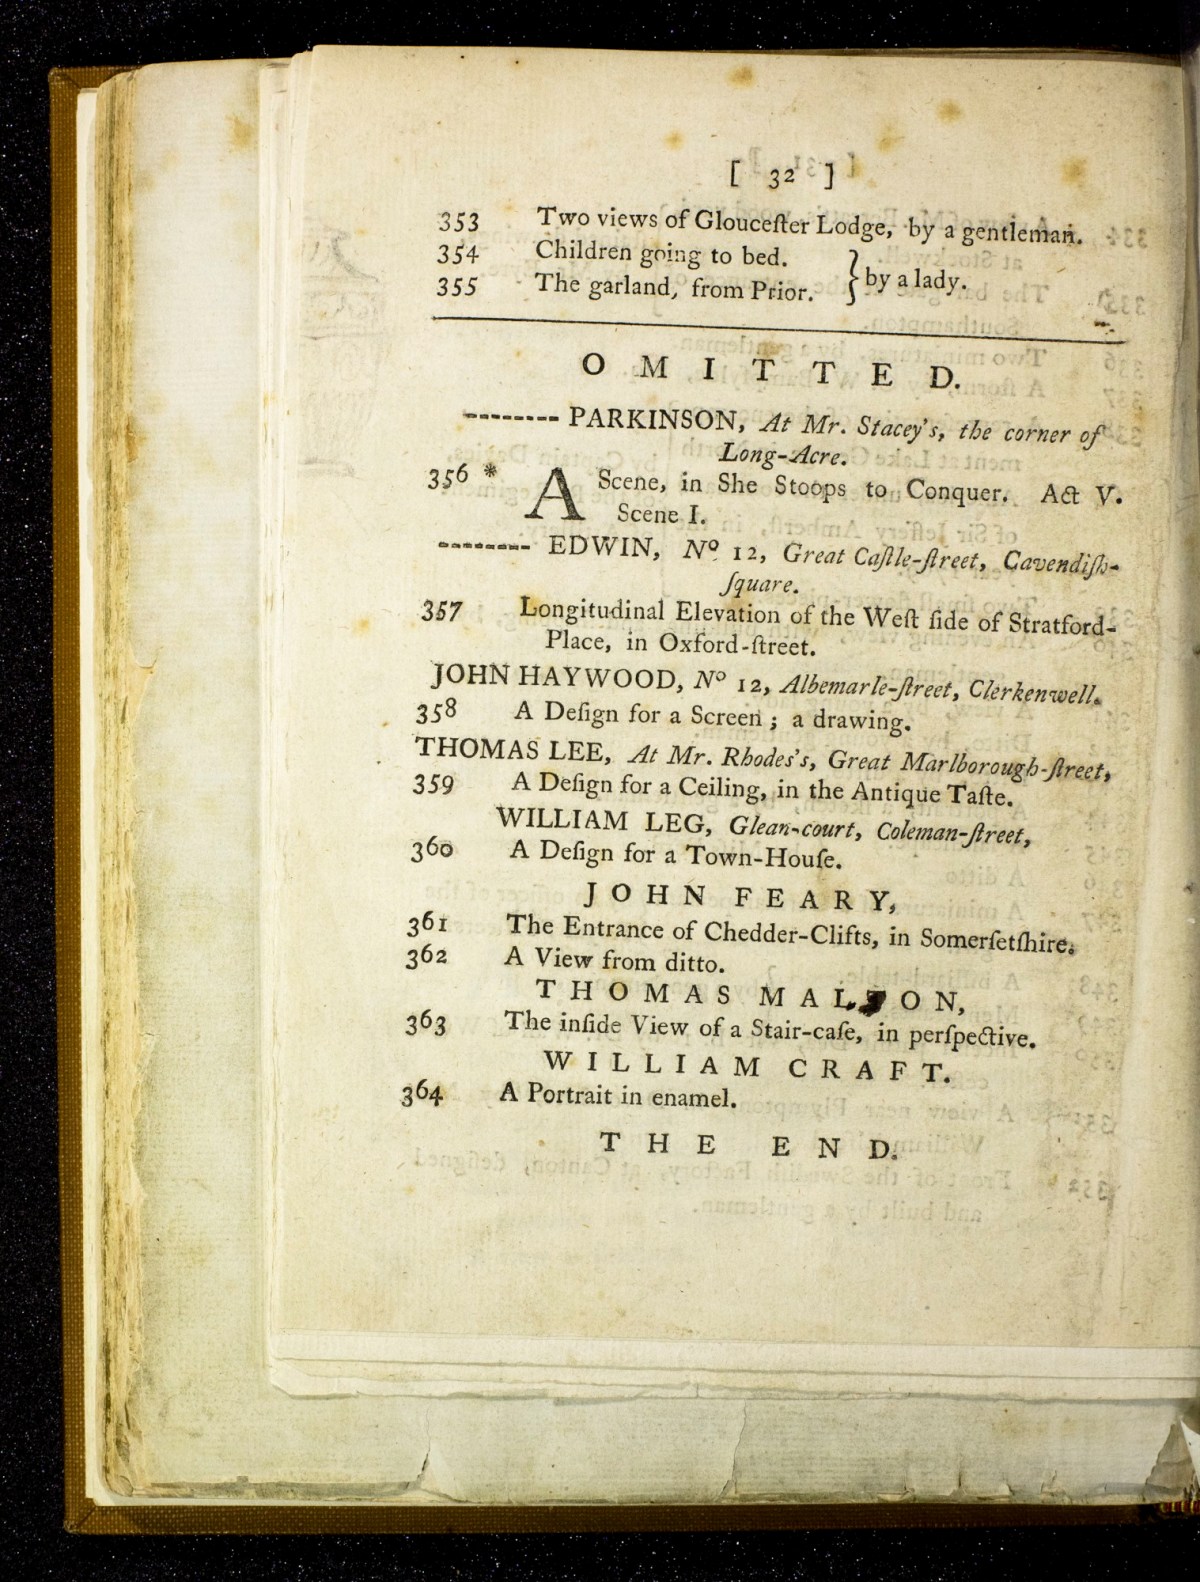 [ 32 ]
353 Two views of Glouceſter Lodge, by a gentleman.
354 Children going to bed.
355 The garland, from Prior. } by a lady.
OMITTED.
-------- PARKINSON, At Mr. Stacey's, the corner of
Long-Acre.
356 * A Scene, in She Stoops to Conquer. Act V.
Scene I.
-------- EDWIN, Nº 12, Great Caſtle-ſtreet, Cavendiſh-
ſquare.
357 Longitudinal Elevation of the Weſt ſide of Stratford-
Place, in Oxford-ſtreet.
JOHN HAYWOOD, Nº 12, Albemarle-ſtreet, Clerkenwell.
358 A Deſign for a Screen; a drawing.
THOMAS LEE, At Mr. Rhodes's, Great Marlborough-ſtreet,
359 A Deſign for a Ceiling, in the Antique Taſte.
WILLIAM LEG, Glean-court, Coleman-ſtreet,
360 A Deſign for a Town-Houſe.
JOHN FEARY,
361 The Entrance of Chedder-Clifts, in Somerſetſhire.
362 A View from ditto.
THOMAS MALTON,
363 The inſide View of a Stair-caſe, in perſpective.
WILLIAM CRAFT.
364 A Portrait in enamel.
THE END.